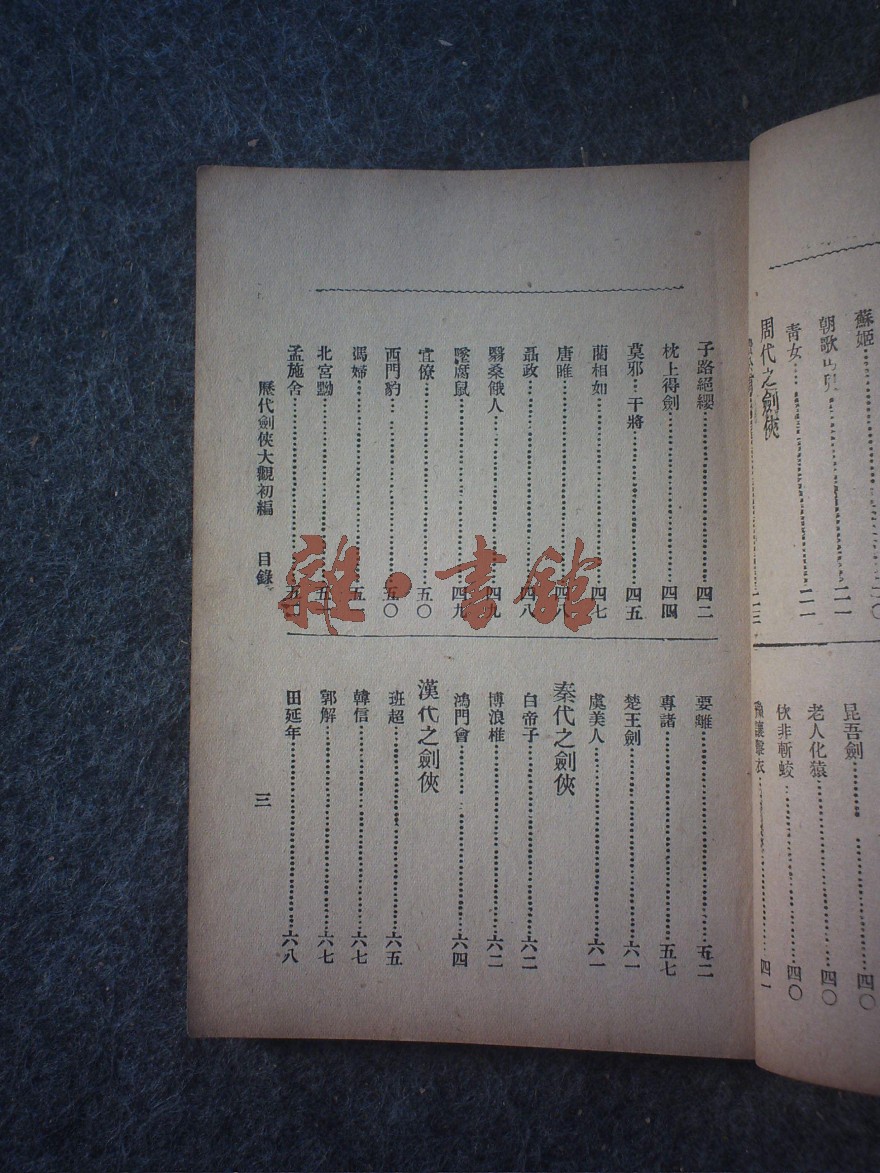 蘇姬……二〇
朝歌……二一
青女……二一
周代之劍俠
昆吾劍……四〇
老人化猿……四〇
佽非斬蛟……四〇
讓擊衣……四一
子路絕纓……四二
枕上得劍……四四
莫邪 干將……四五
藺相如……四七
唐睢……四八
聶政……四八
翳桑餓人……四九
墜腐鼠……四九
宜僚……五〇
西門豹……五〇
馮婦……五
北宮黝……五
孟施舍……五
要離……五二
專諸……五七
楚王劍……六一
虞美人……六一
秦代之劍俠
白帝子……六二
博浪椎……六二
鴻門會……六四
漢代之劍俠
班超……六五
韓信……六七
郭解……六七
田延年……六八
歷代劍俠大觀初編 目錄
三
雜·書館